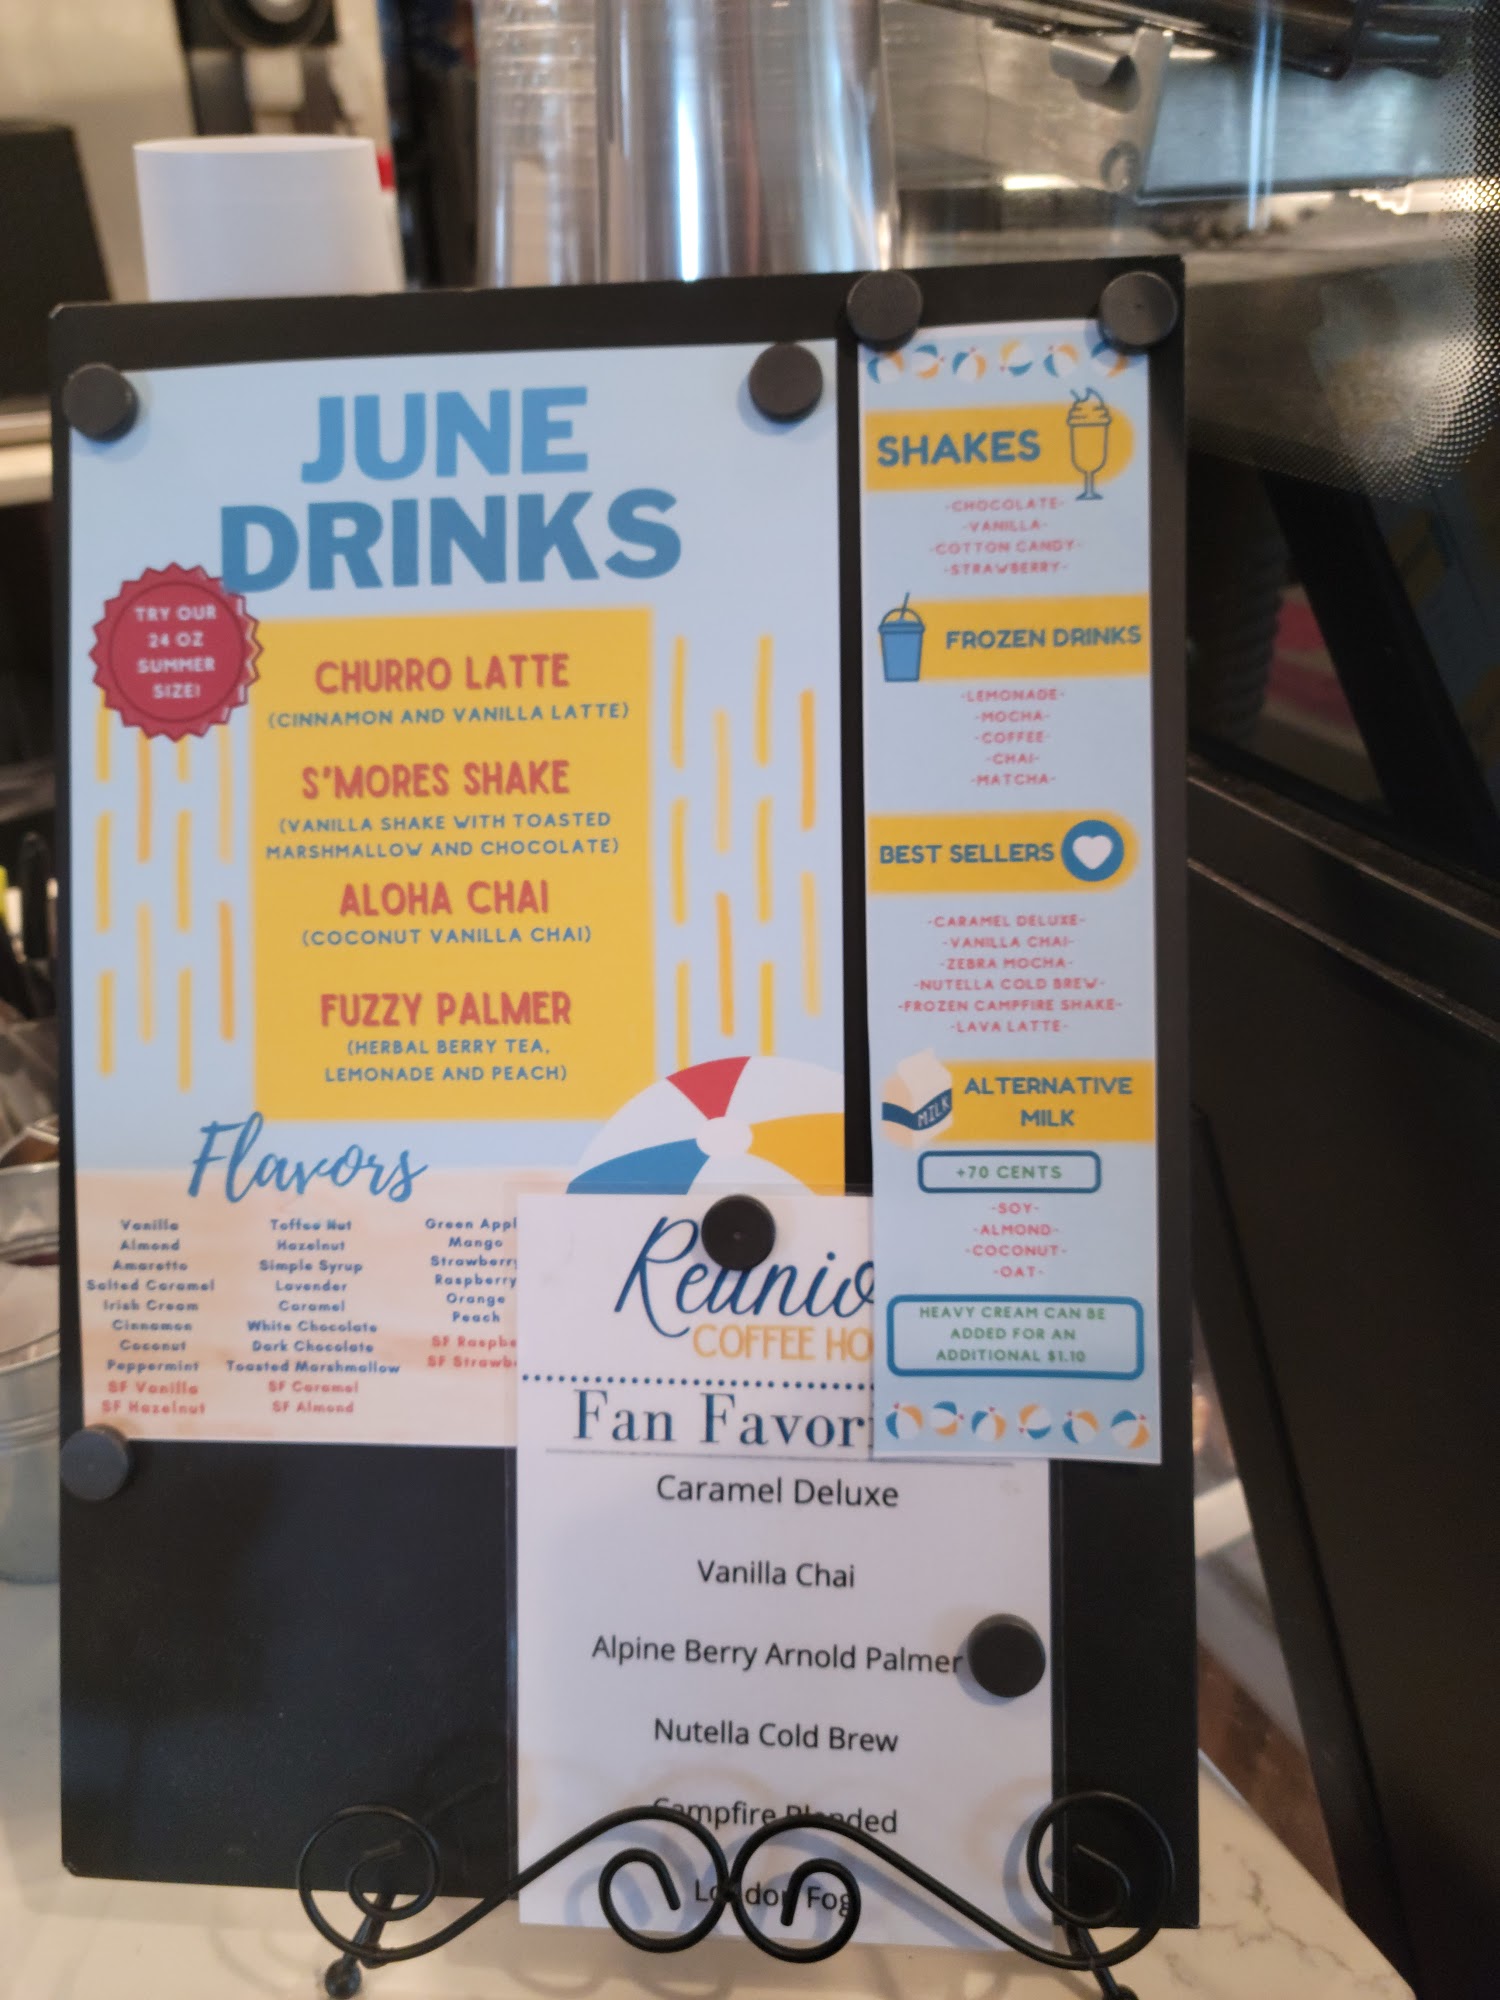 JUNE
DRINKS
TRY OUR
24 OZ
SUMMER
SIZE!
CHURRO LATTE
(CINNAMON AND VANILLA LATTE)
S'MORES SHAKE
(VANILLA SHAKE WITH TOASTED
MARSHMALLOW AND CHOCOLATE)
ALOHA CHAI
(COCONUT VANILLA CHAI)
FUZZY PALMER
(HERBAL BERRY TEA,
LEMONADE AND PEACH)
Flavors
Vanilla
Almond
Amaretto
Salted Caramel
Irish Cream
Cinnamon
Coconut
Peppermint
SF Vanilla
SF Hazelnut
Toffee Nut
Hazelnut
Simple Syrup
Lavender
Caramel
White Chocolate
Dark Chocolate
Toasted Marshmallow
SF Caramel
SF Almond
Green Appl
Mango
Strawberry
Raspberry
Orange
Peach
SF Raspbe
SF Strawbe
SHAKES
-CHOCOLATE-
-VANILLA-
-COTTON CANDY-
-STRAWBERRY-
FROZEN DRINKS
-LEMONADE-
-MOCHA-
-COFFEE-
-CHAI-
-MATCHA-
BEST SELLERS
-CARAMEL DELUXE-
-VANILLA CHAI-
-ZEBRA MOCHA-
-NUTELLA COLD BREW-
-FROZEN CAMPFIRE SHAKE-
-LAVA LATTE-
MILK
ALTERNATIVE
MILK
+70 CENTS
-SOY-
-ALMOND-
-COCONUT-
-OAT-
HEAVY CREAM CAN BE
ADDED FOR AN
ADDITIONAL $1.10
Reunio
COFFEE HO
Fan Favori
Caramel Deluxe
Vanilla Chai
Alpine Berry Arnold Palmer
Nutella Cold Brew
Campfire Blended
London Fog